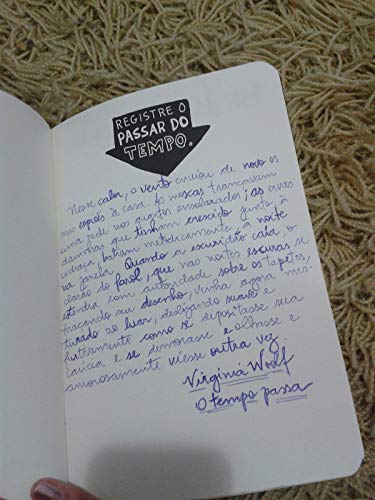 REGISTRE O
PASSAR DO
TEMPO.
Nesse calor, o vento enviou de novo os
seus espiões à casa. As moscas trançavam
uma rede nos quartos ensolarados; as ervas
daninhas que tinham crescido junto à
vidraça, batiam metodicamente à noite
na janela. Quando a escuridão caía, o
clarão do farol, que nas noites escuras se
estendia com autoridade sobre os tapetes,
traçando seu desenho, vinha agora mis-
turado ao luar, deslizando suave e
furtivamente como se depositasse sua
carícia e se demorasse e olhasse e
amorosamente viesse outra vez.
Virginia Woolf
O tempo passa